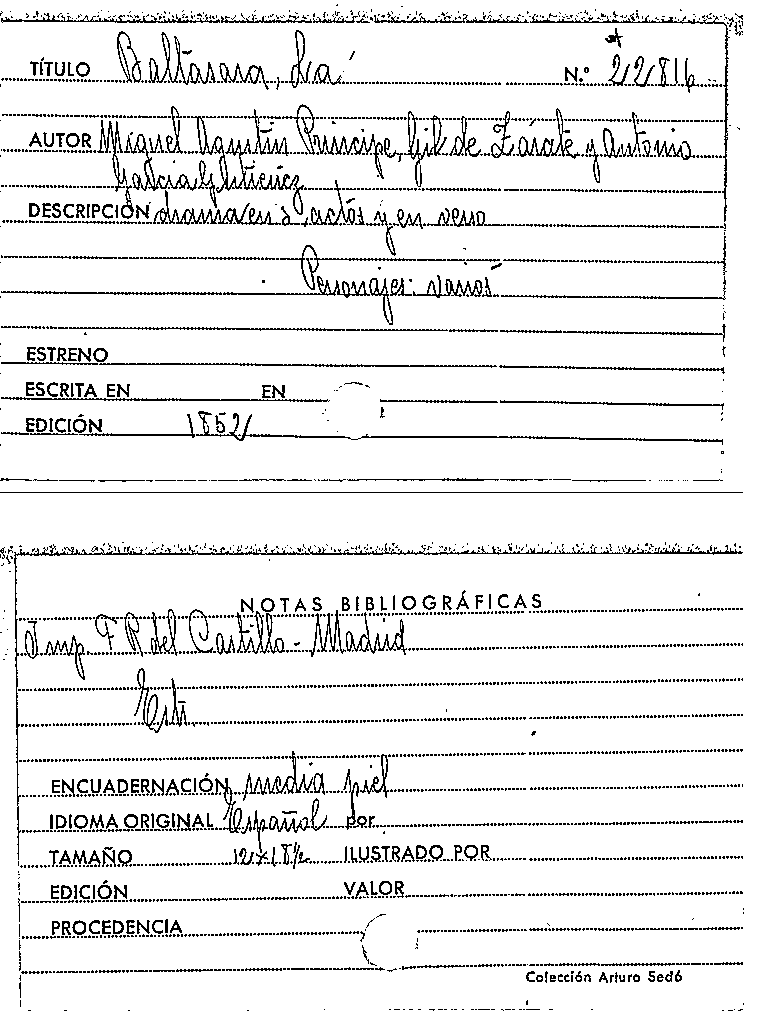 TÍTULO Baltasara, La
N.º 22816
AUTOR Miguel Agustín Príncipe, Gil de Zárate y Antonio
García Gutiérrez
DESCRIPCIÓN drama en 3 actos y en verso
Personajes: varios
ESTRENO
ESCRITA EN EN
EDICIÓN 1852
NOTAS BIBLIOGRÁFICAS
Imp. F R del Castillo - Madrid
ENCUADERNACIÓN media piel
IDIOMA ORIGINAL Español por
TAMAÑO 12x18½ ILUSTRADO POR
EDICIÓN VALOR
PROCEDENCIA
Colección Arturo Sedó